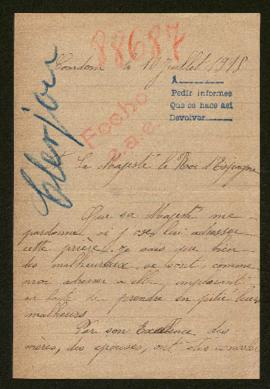 88687
Condom le 18 juillet 1915
A
Pedir informes
Que se hace asi
Devolver
Clerjou
Fecho
Sa Majesté le Roi d'Espagne
Que sa Majesté me
pardonne si j'ose lui adresser
cette prière, je sais que bien
des malheureux se sont, comme
moi adressés à elle, implorant
de prendre en pitié leurs
malheurs.
Par son Excellence, des
mères, des épouses, ont été